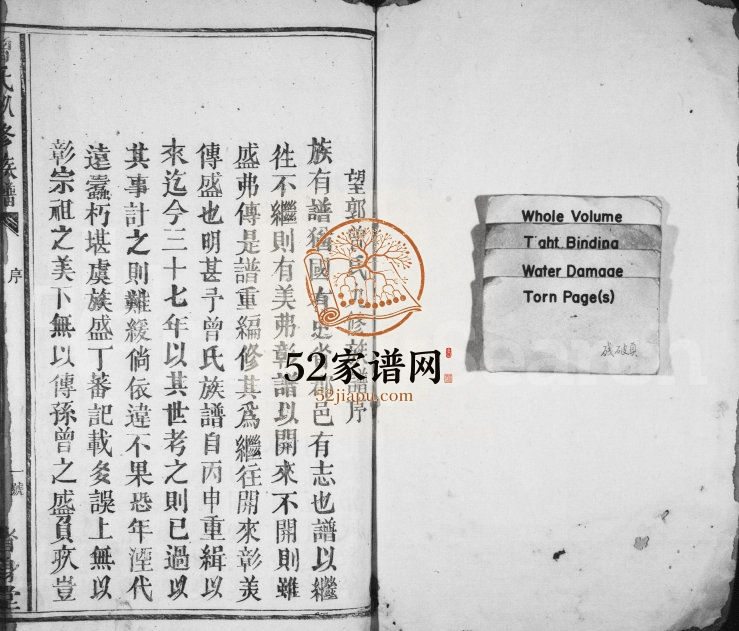 望郭曾氏修族譜序
族有譜猶國有邑有志也譜以繼
徃不繼則有美弗彰譜以開來不開則雖
盛弗傳是譜重編修其爲繼往開來彰美
傳盛也明甚予曾氏族譜自丙申重緝以
來迄今三十七年以其世考之則已過以
其事計之則難緩倘依違不果恐年湮代
遠蠹朽堪虞族盛丁蕃記載多誤上無以
彰宗祖之美下無以傳孫曾之盛負疚豈
氏修族譜
序
一號
堂
52家谱网
52jiapu.com
Whole Volume
Tight Binding
Water Damage
Torn Page(s)
残破頁